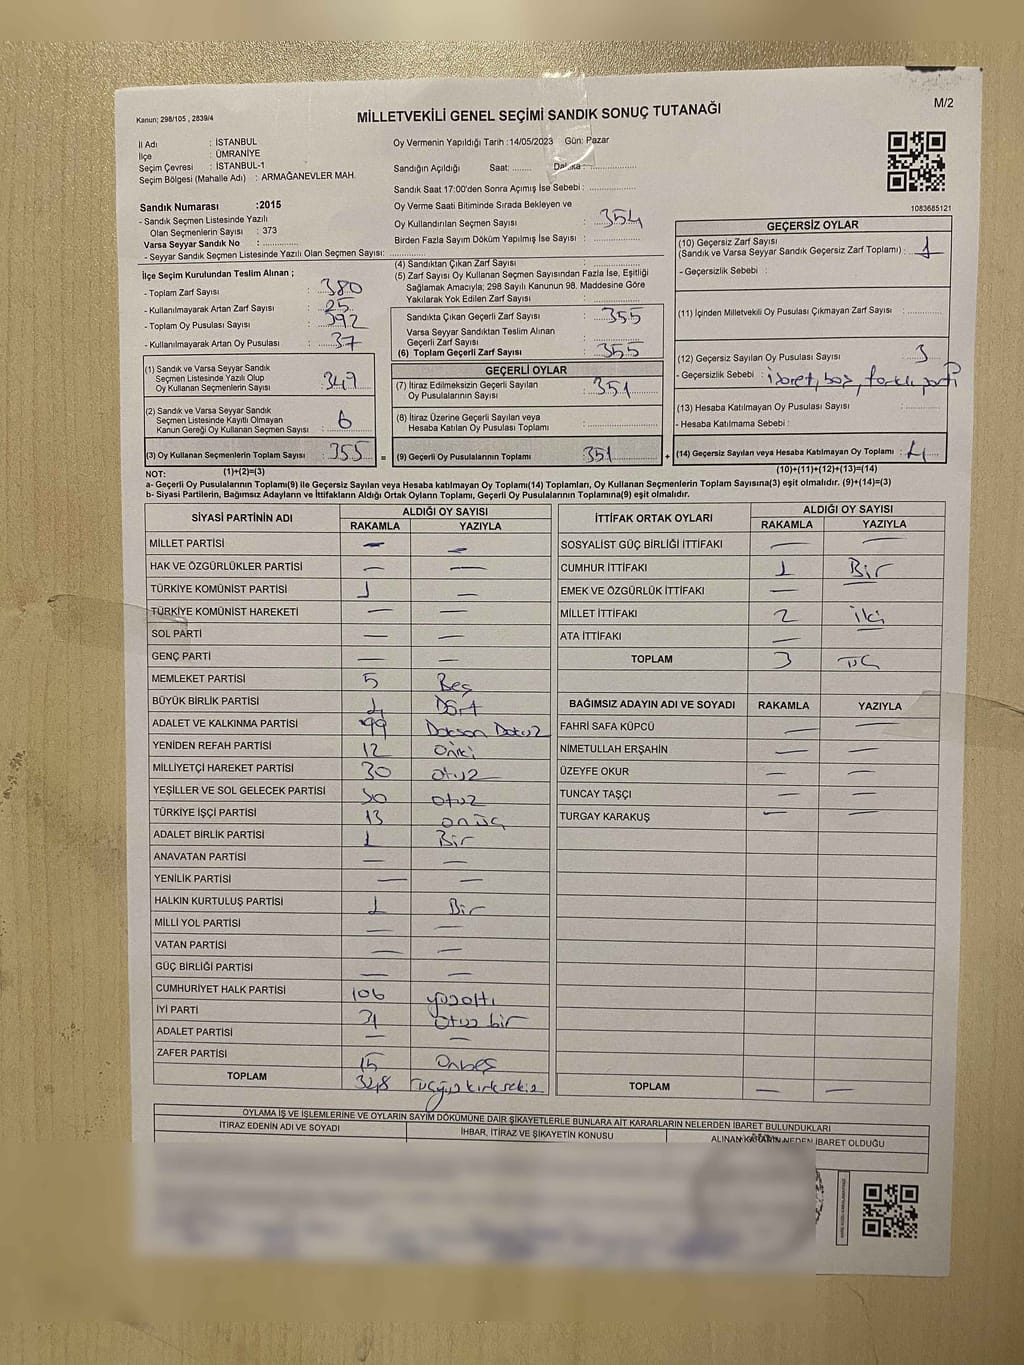 M/2
Kanun; 298/105 , 2839/4
MİLLETVEKİLİ GENEL SEÇİMİ SANDIK SONUÇ TUTANAĞI
İl Adı : İSTANBUL
İlçe : ÜMRANİYE
Seçim Çevresi : İSTANBUL-1
Seçim Bölgesi (Mahalle Adı) : ARMAĞANEVLER MAH.
Oy Vermenin Yapıldığı Tarih :14/05/2023 Gün: Pazar
Sandığın Açıldığı Saat: ........ Dakika : ................
Sandık Saat 17:00'den Sonra Açımış İse Sebebi : ................
Sandık Numarası :2015
- Sandık Seçmen Listesinde Yazılı
Olan Seçmenlerin Sayısı : 373
Varsa Seyyar Sandık No : ..............
- Seyyar Sandık Seçmen Listesinde Yazılı Olan Seçmen Sayısı: ..............
Oy Verme Saati Bitiminde Sırada Bekleyen ve
Oy Kullandırılan Seçmen Sayısı : 354
Birden Fazla Sayım Döküm Yapılmış İse Sayısı : ................
1083685121
İlçe Seçim Kurulundan Teslim Alınan ;
- Toplam Zarf Sayısı : 380
- Kullanılmayarak Artan Zarf Sayısı : 25
- Toplam Oy Pusulası Sayısı : 392
- Kullanılmayarak Artan Oy Pusulası : 37
(1) Sandık ve Varsa Seyyar Sandık
Seçmen Listesinde Yazılı Olup
Oy Kullanan Seçmenlerin Sayısı : 349
(2) Sandık ve Varsa Seyyar Sandık
Seçmen Listesinde Kayıtlı Olmayan
Kanun Gereği Oy Kullanan Seçmen Sayısı : 6
(3) Oy Kullanan Seçmenlerin Toplam Sayısı : 355 =
(4) Sandıktan Çıkan Zarf Sayısı : ................
(5) Zarf Sayısı Oy Kullanan Seçmen Sayısından Fazla İse, Eşitliği
Sağlamak Amacıyla; 298 Sayılı Kanunun 98. Maddesine Göre
Yakılarak Yok Edilen Zarf Sayısı : ................
Sandıkta Çıkan Geçerli Zarf Sayısı : 355
Varsa Seyyar Sandıktan Teslim Alınan
Geçerli Zarf Sayısı : ................
(6) Toplam Geçerli Zarf Sayısı : 355
GEÇERLİ OYLAR
(7) İtiraz Edilmeksizin Geçerli Sayılan
Oy Pusulalarının Sayısı : 351
(8) İtiraz Üzerine Geçerli Sayılan veya
Hesaba Katılan Oy Pusulası Toplamı : ................
(9) Geçerli Oy Pusulalarının Toplamı : 351 +
GEÇERSİZ OYLAR
(10) Geçersiz Zarf Sayısı
(Sandık ve Varsa Seyyar Sandık Geçersiz Zarf Toplamı) : 1
- Geçersizlik Sebebi :
(11) İçinden Milletvekili Oy Pusulası Çıkmayan Zarf Sayısı : ............
(12) Geçersiz Sayılan Oy Pusulası Sayısı : 3
- Geçersizlik Sebebi : işaret, boş, farklı parti
(13) Hesaba Katılmayan Oy Pusulası Sayısı : ............
- Hesaba Katılmama Sebebi :
(14) Geçersiz Sayılan veya Hesaba Katılmayan Oy Toplamı : 4
NOT: (1)+(2)=(3)
(10)+(11)+(12)+(13)=(14)
a- Geçerli Oy Pusulalarının Toplamı(9) ile Geçersiz Sayılan veya Hesaba katılmayan Oy Toplamı(14) Toplamları, Oy Kullanan Seçmenlerin Toplam Sayısına(3) eşit olmalıdır. (9)+(14)=(3)
b- Siyasi Partilerin, Bağımsız Adayların ve İttifakların Aldığı Ortak Oyların Toplamı, Geçerli Oy Pusulalarının Toplamına(9) eşit olmalıdır.
SİYASİ PARTİNİN ADI
ALDIĞI OY SAYISI
RAKAMLA YAZIYLA
MİLLET PARTİSİ — —
HAK VE ÖZGÜRLÜKLER PARTİSİ — —
TÜRKİYE KOMÜNİST PARTİSİ 1 —
TÜRKİYE KOMÜNİST HAREKETİ — —
SOL PARTİ — —
GENÇ PARTİ — —
MEMLEKET PARTİSİ 5 Beş
BÜYÜK BİRLİK PARTİSİ 4 Dört
ADALET VE KALKINMA PARTİSİ 99 Doksan Dokuz
YENİDEN REFAH PARTİSİ 12 Oniki
MİLLİYETÇİ HAREKET PARTİSİ 30 otuz
YEŞİLLER VE SOL GELECEK PARTİSİ 30 otuz
TÜRKİYE İŞÇİ PARTİSİ 13 onüç
ADALET BİRLİK PARTİSİ 1 Bir
ANAVATAN PARTİSİ — —
YENİLİK PARTİSİ — —
HALKIN KURTULUŞ PARTİSİ 1 Bir
MİLLİ YOL PARTİSİ — —
VATAN PARTİSİ — —
GÜÇ BİRLİĞİ PARTİSİ — —
CUMHURİYET HALK PARTİSİ 106 yüzaltı
İYİ PARTİ 31 otuz bir
ADALET PARTİSİ — —
ZAFER PARTİSİ 15 Onbeş
TOPLAM 348 Üçyüz kırksekiz
İTTİFAK ORTAK OYLARI
ALDIĞI OY SAYISI
RAKAMLA YAZIYLA
SOSYALİST GÜÇ BİRLİĞİ İTTİFAKI — —
CUMHUR İTTİFAKI 1 Bir
EMEK VE ÖZGÜRLÜK İTTİFAKI — —
MİLLET İTTİFAKI 2 iki
ATA İTTİFAKI — —
TOPLAM 3 üç
BAĞIMSIZ ADAYIN ADI VE SOYADI RAKAMLA YAZIYLA
FAHRİ SAFA KÜPCÜ — —
NİMETULLAH ERŞAHİN — —
ÜZEYFE OKUR — —
TUNCAY TAŞÇI — —
TURGAY KARAKUŞ — —
TOPLAM — —
OYLAMA İŞ VE İŞLEMLERİNE VE OYLARIN SAYIM DÖKÜMÜNE DAİR ŞİKAYETLERLE BUNLARA AİT KARARLARIN NELERDEN İBARET BULUNDUKLARI
İTİRAZ EDENİN ADI VE SOYADI
İHBAR, İTİRAZ VE ŞİKAYETİN KONUSU
ALINAN KARARIN NEDEN İBARET OLDUĞU